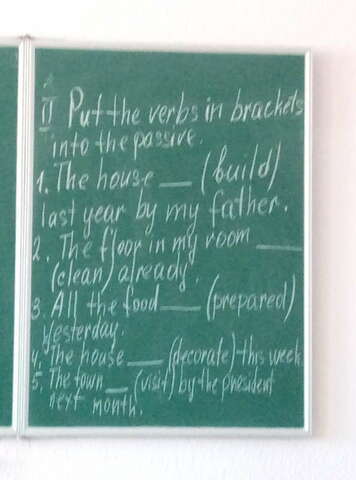 II Put the verbs in brackets
into the passive.
1. The house __ (build)
last year by my father.
2. The floor in my room ___
(clean) already.
3. All the food ___ (prepared)
yesterday.
4. The house ___ (decorate) this week.
5. The town __ (visit) by the president
next month.